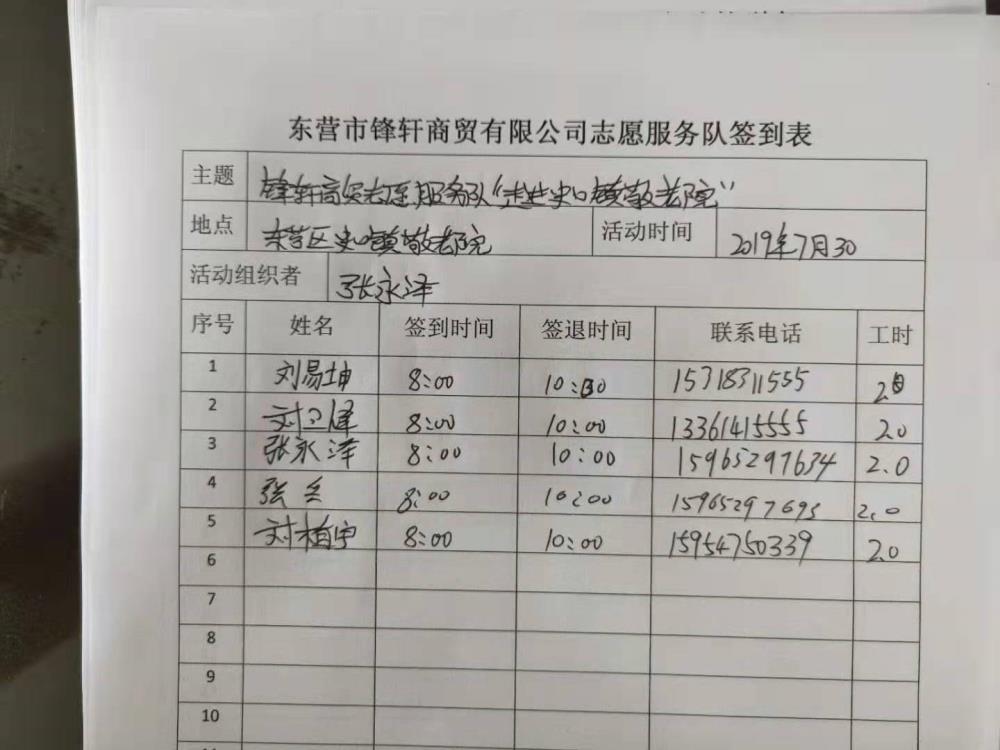 东营市锋轩商贸有限公司志愿服务队签到表
主题 锋轩商贸志愿服务队“走进史口镇敬老院”
地点 东营区史口镇敬老院 活动时间 2019年7月30
活动组织者 张永泽
序号 姓名 签到时间 签退时间 联系电话 工时
1 刘易坤 8:00 10:00 15318311555 2.0
2 刘卫峰 8:00 10:00 13361415555 2.0
3 张永泽 8:00 10:00 15965297634 2.0
4 张 8:00 10:00 15965297693 2.0
5 刘柏宇 8:00 10:00 15954750339 2.0
6
7
8
9
10